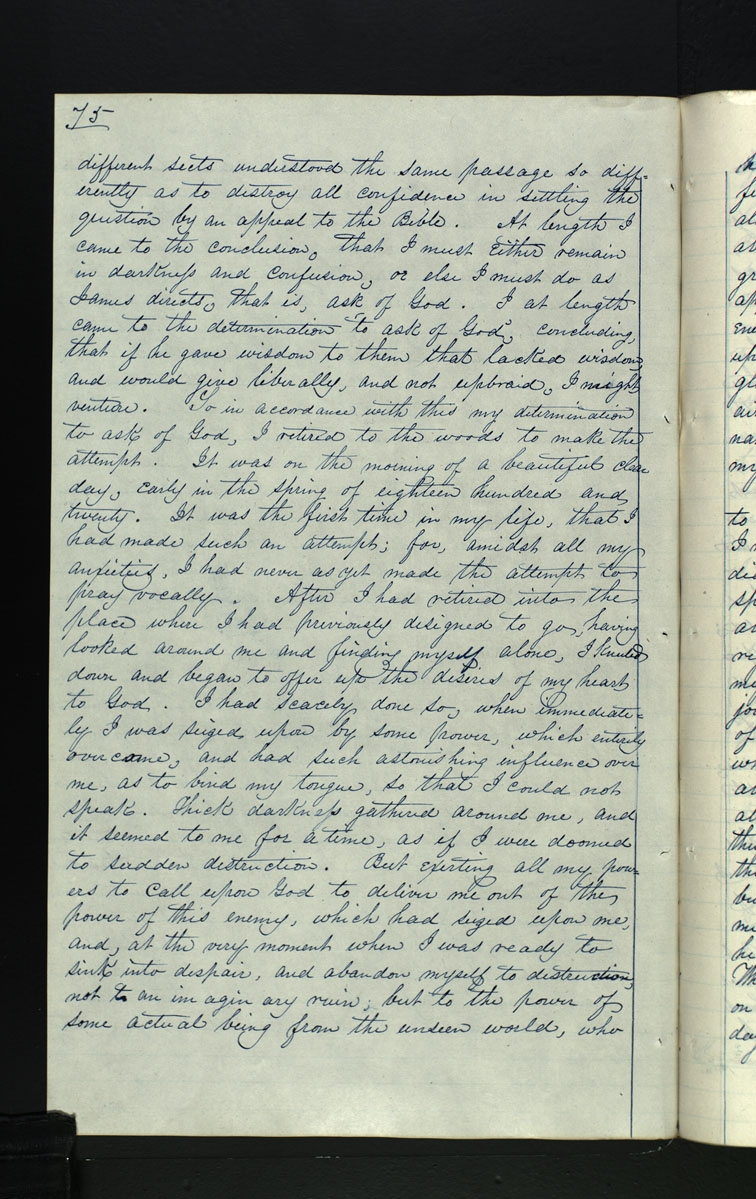 75
different sects understood the same passage so diff=
erently as to distroy all confidence in settling the
question by an appeal to the Bible. At length I
came to the conclusion, that I must Either remain
in darkness and confusion, or else I must do as
James directs, that is, ask of God. I at length
came to the determination to "ask of God", concluding,
that if he gave wisdom to them that lacked wisdom,
and would give liberally, and not upbraid, I might
venture. So in accordance with this my determination
to ask of God, I retired to the woods to make the
attempt. It was on the morning of a beautiful clear
day, early in the spring of eighteen hundred and
twenty. It was the first time in my life, that I
had made such an attempt; for, amidst all my
anxieties, I had never as yet made the attempt to
pray vocally. After I had retired into the
place where I had previously designed to go, having
looked around me and finding myself alone, I kneeled
down and began to offer up the desires of my heart
to God. I had scacely done so, when immediate=
ly I was seized upon by some power, which entirely
overcame, and had such astonishing influence over
me, as to bind my tongue, so that I could not
speak. Thick darkness gathered around me, and
it seemed to me for a time, as if I were doomed
to sudden destruction. But exerting all my pow=
ers to call upon God to deliver me out of the
power of this enemy, which had seized upon me,
and, at the very moment when I was ready to
sink into despair, and abandon myself to destruction,
not to an imaginary ruin; but to the power of
some actual being from the unseen world, who